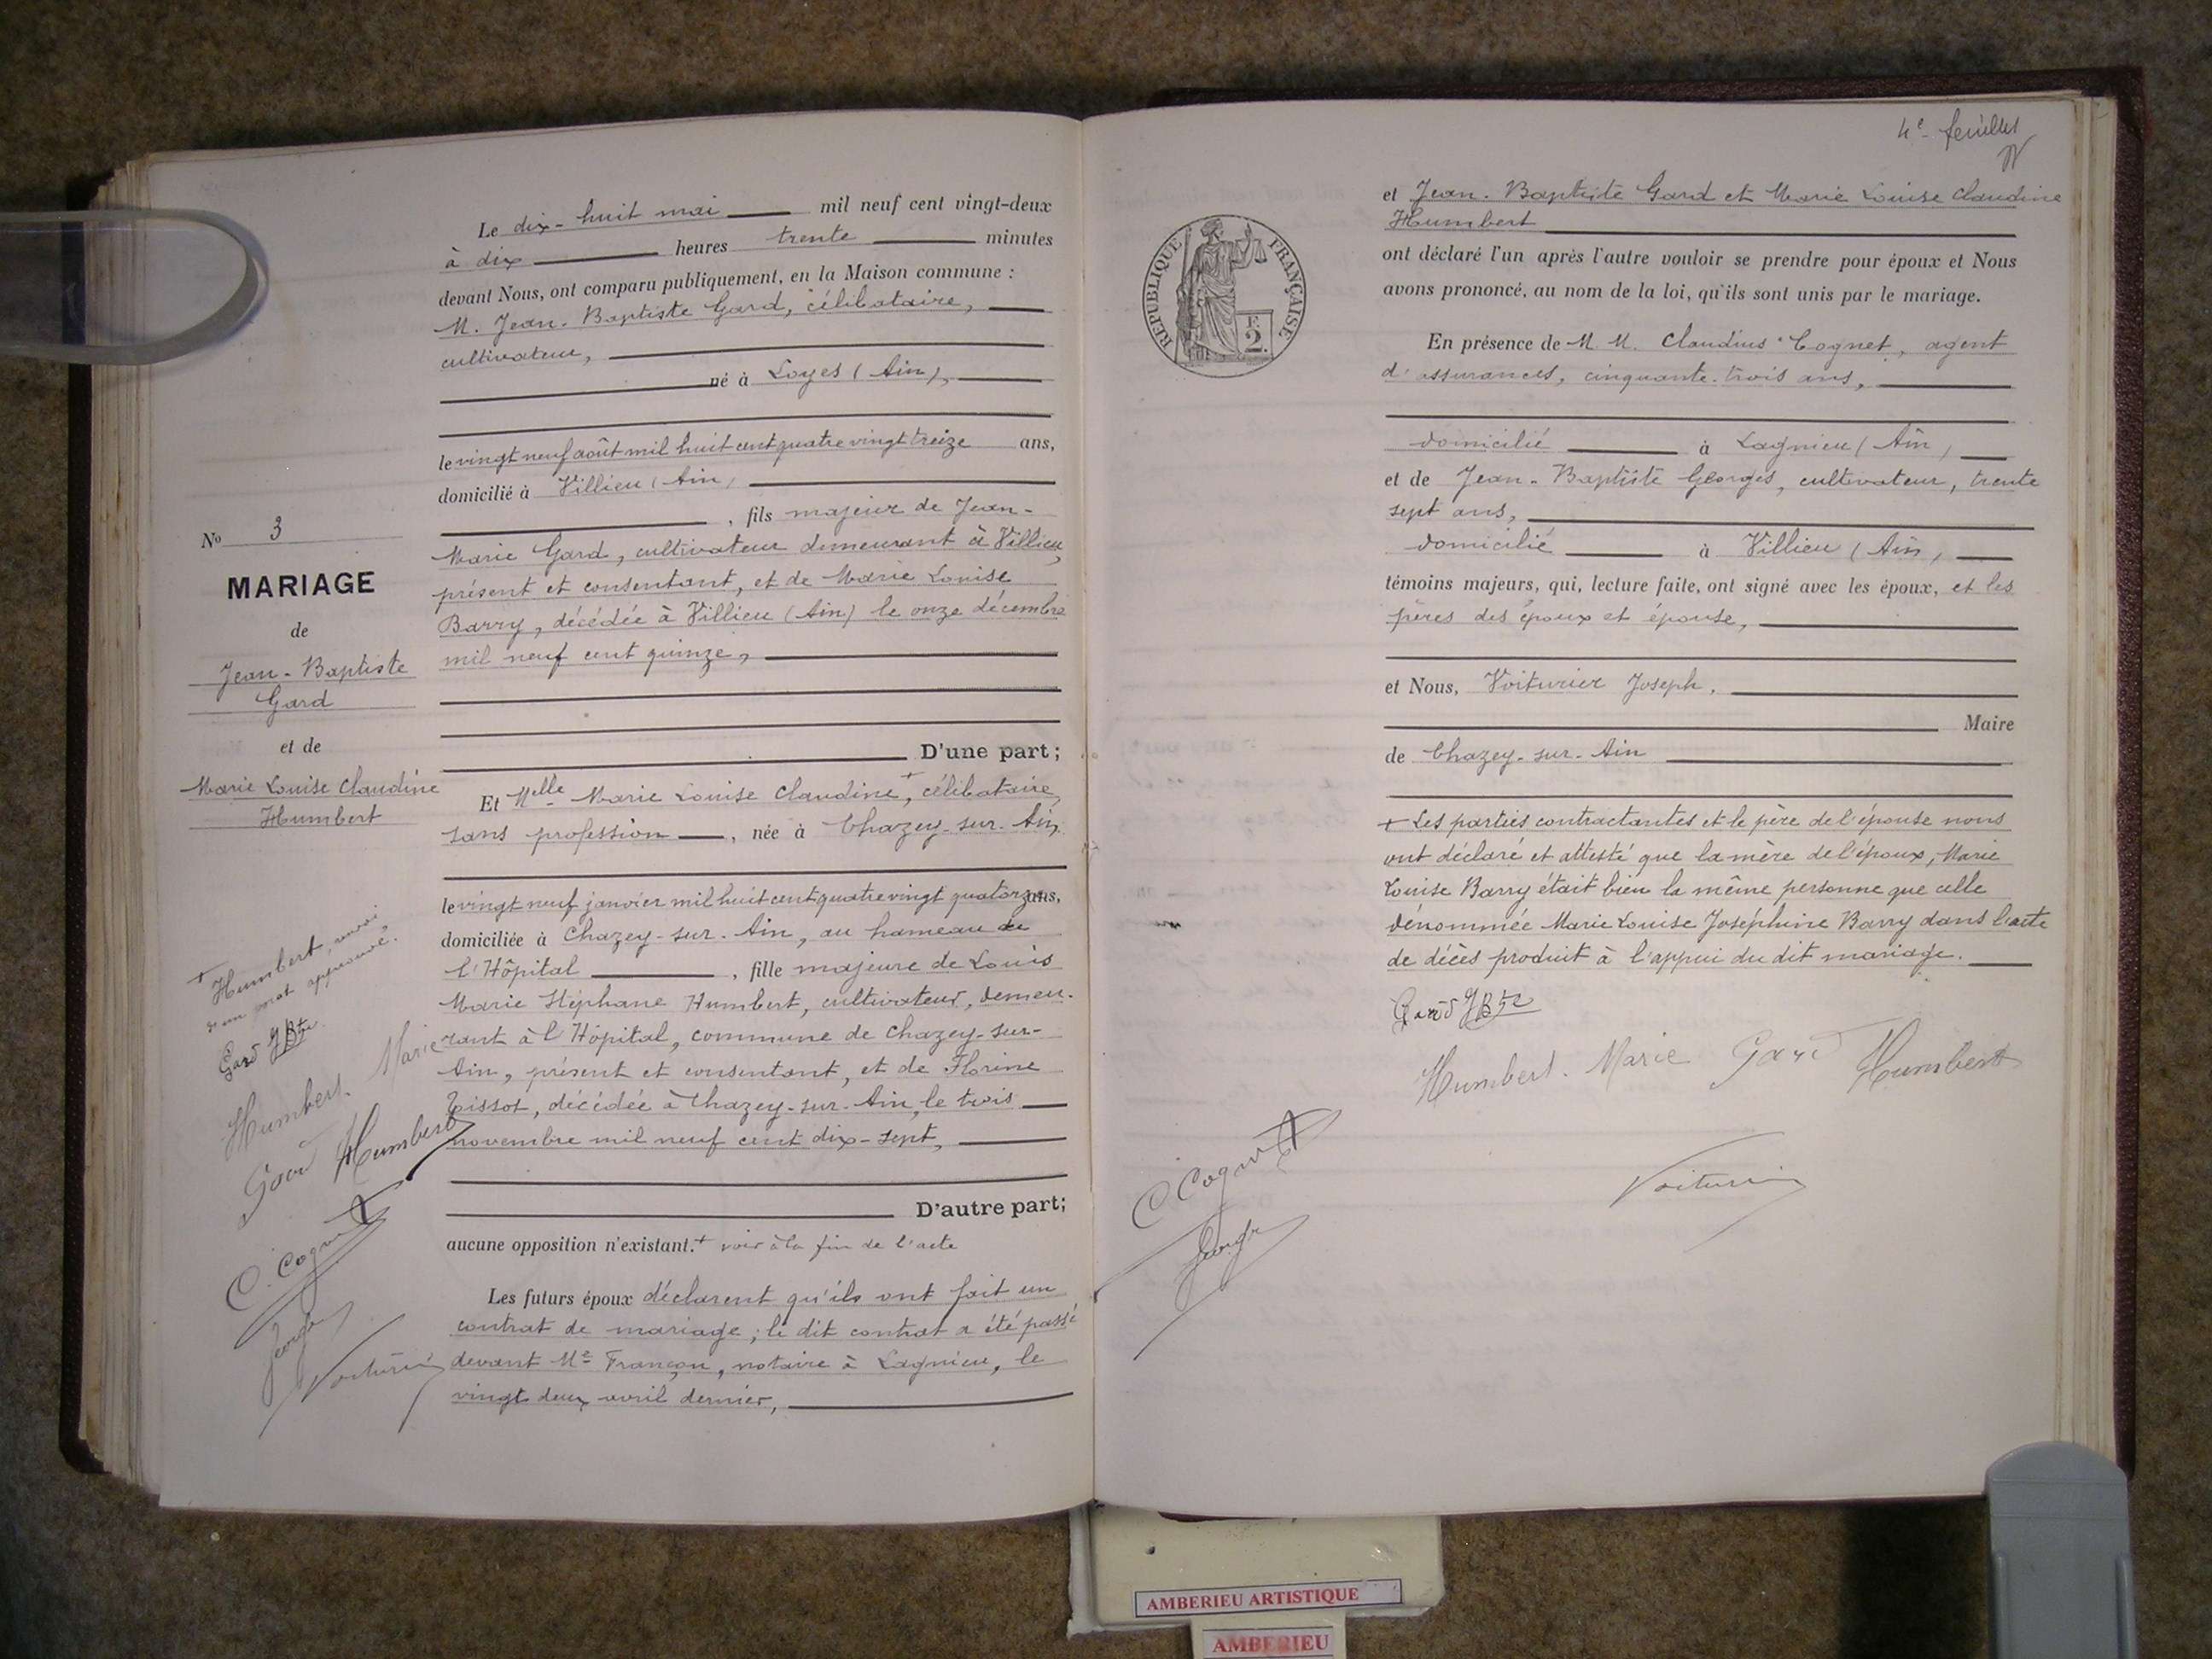 Le dix-huit mai mil neuf cent vingt-deux
à dix heures trente minutes
devant Nous, ont comparu publiquement, en la Maison commune :
M. Jean-Baptiste Gard, célibataire,
cultivateur,
né à Loyes (Ain),
le vingt neuf août mil huit cent quatre vingt treize ans,
domicilié à Villieu (Ain)
, fils majeur de Jean-
Marie Gard, cultivateur demeurant à Villieu,
présent et consentant, et de Marie Louise
Barry, décédée à Villieu (Ain) le onze décembre
mil neuf cent quinze,
D'une part;
No 3
MARIAGE
de
Jean-Baptiste
Gard
et de
Marie Louise Claudine
Humbert
Et Melle Marie Louise Claudine +, célibataire,
sans profession, née à Chazey-sur-Ain,
le vingt neuf janvier mil huit cent quatre vingt quatorze ans,
domiciliée à Chazey-sur-Ain, au hameau de
l'Hôpital, fille majeure de Louis
Marie Stéphane Humbert, cultivateur, demeu-
rant à l'Hôpital, commune de Chazey-sur-
Ain, présent et consentant, et de Florine
Tissot, décédée à Chazey-sur-Ain, le trois
novembre mil neuf cent dix-sept,
D'autre part;
aucune opposition n'existant. + voir à la fin de l'acte
Les futurs époux déclarent qu'ils ont fait un
contrat de mariage; le dit contrat a été passé
devant Me Françon, notaire à Lagnieu, le
vingt deux avril dernier,
+ Humbert, renvoi
d'un mot approuvé.
Gard JBte
Humbert Marie
Gard Humbert
C. Cognet
George
Voiturier
4e feuillet
RÉPUBLIQUE FRANÇAISE
F.
2.
et Jean-Baptiste Gard et Marie Louise Claudine
Humbert
ont déclaré l'un après l'autre vouloir se prendre pour époux et Nous
avons prononcé, au nom de la loi, qu'ils sont unis par le mariage.
En présence de M. M. Claudius Cognet, agent
d'assurances, cinquante-trois ans,
domicilié à Lagnieu (Ain)
et de Jean-Baptiste Georges, cultivateur, trente
sept ans,
domicilié à Villieu (Ain)
témoins majeurs, qui, lecture faite, ont signé avec les époux, et les
pères des époux et épouse,
et Nous, Voiturier Joseph,
Maire
de Chazey-sur-Ain
+ Les parties contractantes et le père de l'épouse nous
ont déclaré et attesté que la mère de l'époux, Marie
Louise Barry était bien la même personne que celle
dénommée Marie Louise Joséphine Barry dans l'acte
de décès produit à l'appui du dit mariage.
Gard JBte
Humbert Marie Gard Humbert
C Cognet
George
Voiturier
AMBERIEU ARTISTIQUE
AMBERIEU